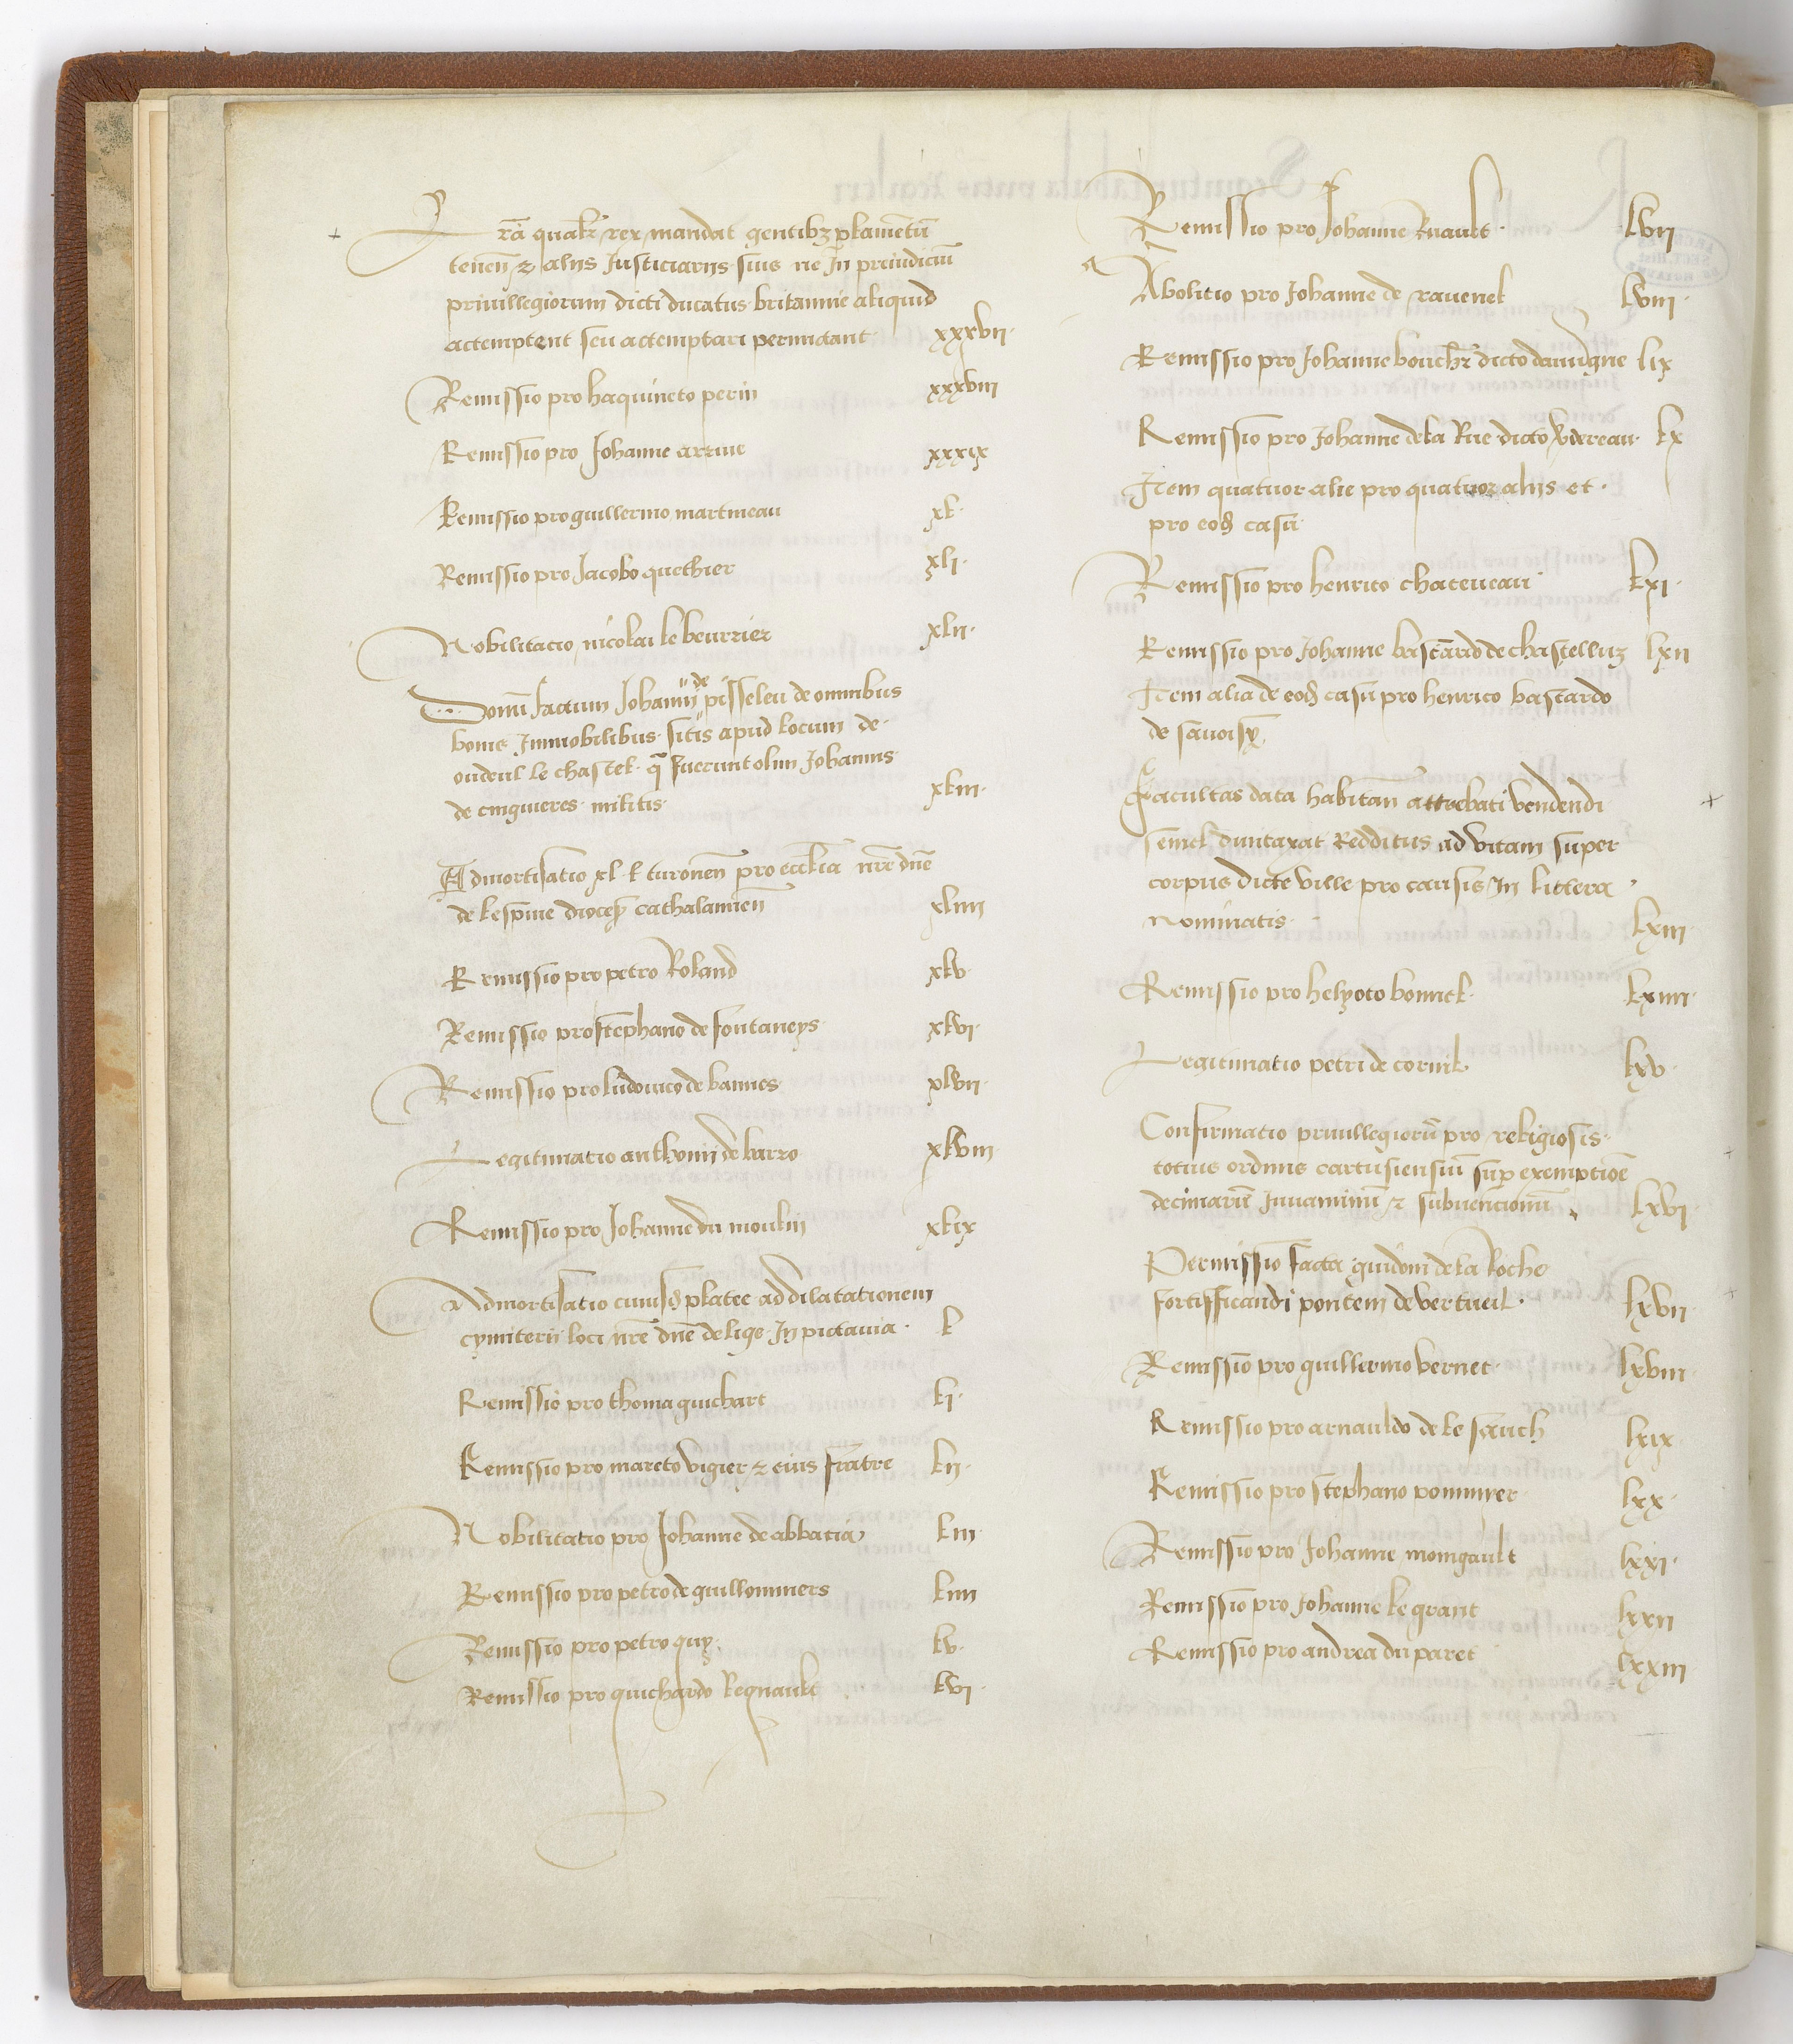 Lrā qualr̄ rex mandat gentibꝫ plamētū
tenen̄ ⁊ alijs Justiciarijs suis ne In preiudiciū
priuillegiorum dicti ducatus britannie aliquid
actemptent seu actemptari permictant xxxvii
Remissio pro haquineto perin xxxviii
Remissio pro Johanne arriue xxxix
Remissio pro guillermo martineau xl
Remissio pro Jacobo quethier xli
Nobilitacio nicolai le beurrier xlii
Donū factum Johanni de pisseleu de omnibus
bonis Immobilibus sitis apud locum de
oudeul le chastel q̄ fuerunt olim Johannis
de cinguieres militis xliii
Admortisatio xl l turonen̄ pro eccl̄ia nr̄e dn̄e
de lespine dioceß cathalanien̄ xliiii
Remissio pro petro Roland xlv
Remissio pro stephano de fontaneys xlvi
Remissio pro ludouico de bannes xlvii
Legitimatio anthonii de barro xlviii
Remissio pro Johanne du moulin xlix
Admortisatio cuiusd platee ad dilatationem
cymiterii loci nr̄e dn̄e de lige In pictauia l
Remissio pro thoma guichart li
Remissio pro mareto vigier ⁊ eius fratre lii
Nobilitatio pro Johanne de abbatia liii
Remissio pro petro de guillommers liiii
Remissio pro petro guy lv
Remissio pro guichardo Regnault lvi
Remissio pro Johanne Ruault lvii
Abolitio pro Johanne de rauenel lviii
Remissio pro Johanne bouchr̄ dicto dauuigne lix
Remissio pro Johanne de la Rue dicto verdereau lx
Item quatuor alie pro quatuor alijs et
pro eod casu
Remissio pro henrico chateueau lxi
Remissio pro Johanne bastardo de chastelluz lxii
Item alia de eod casu pro henrico bastardo
de sauoisy
Facultas data habitan̄ attrebati vendendi
semel duntaxat Redditus ad vitam super
corpus dicte ville pro causis In littera
nominatis lxiii
Remissio pro helyoto bonnel lxiiii
Legitimatio petri de cornil lxv
Confirmatio priuillegiorū pro religiosis
totius ordinis cartusiensiū sup exemptiōe
decimarū Iuuaminū ⁊ subuencionū lxvi
Permissio facta guidoni de la Roche
fortifficandi pontem de vertueil lxvii
Remissio pro guillermo vernet lxviii
Remissio pro arnauldo de le sauch lxix
Remissio pro stephano pommier lxx
Remissio pro Johanne moingault lxxi
Remissio pro Johanne le grant lxxii
Remissio pro andrea du paret lxxiii